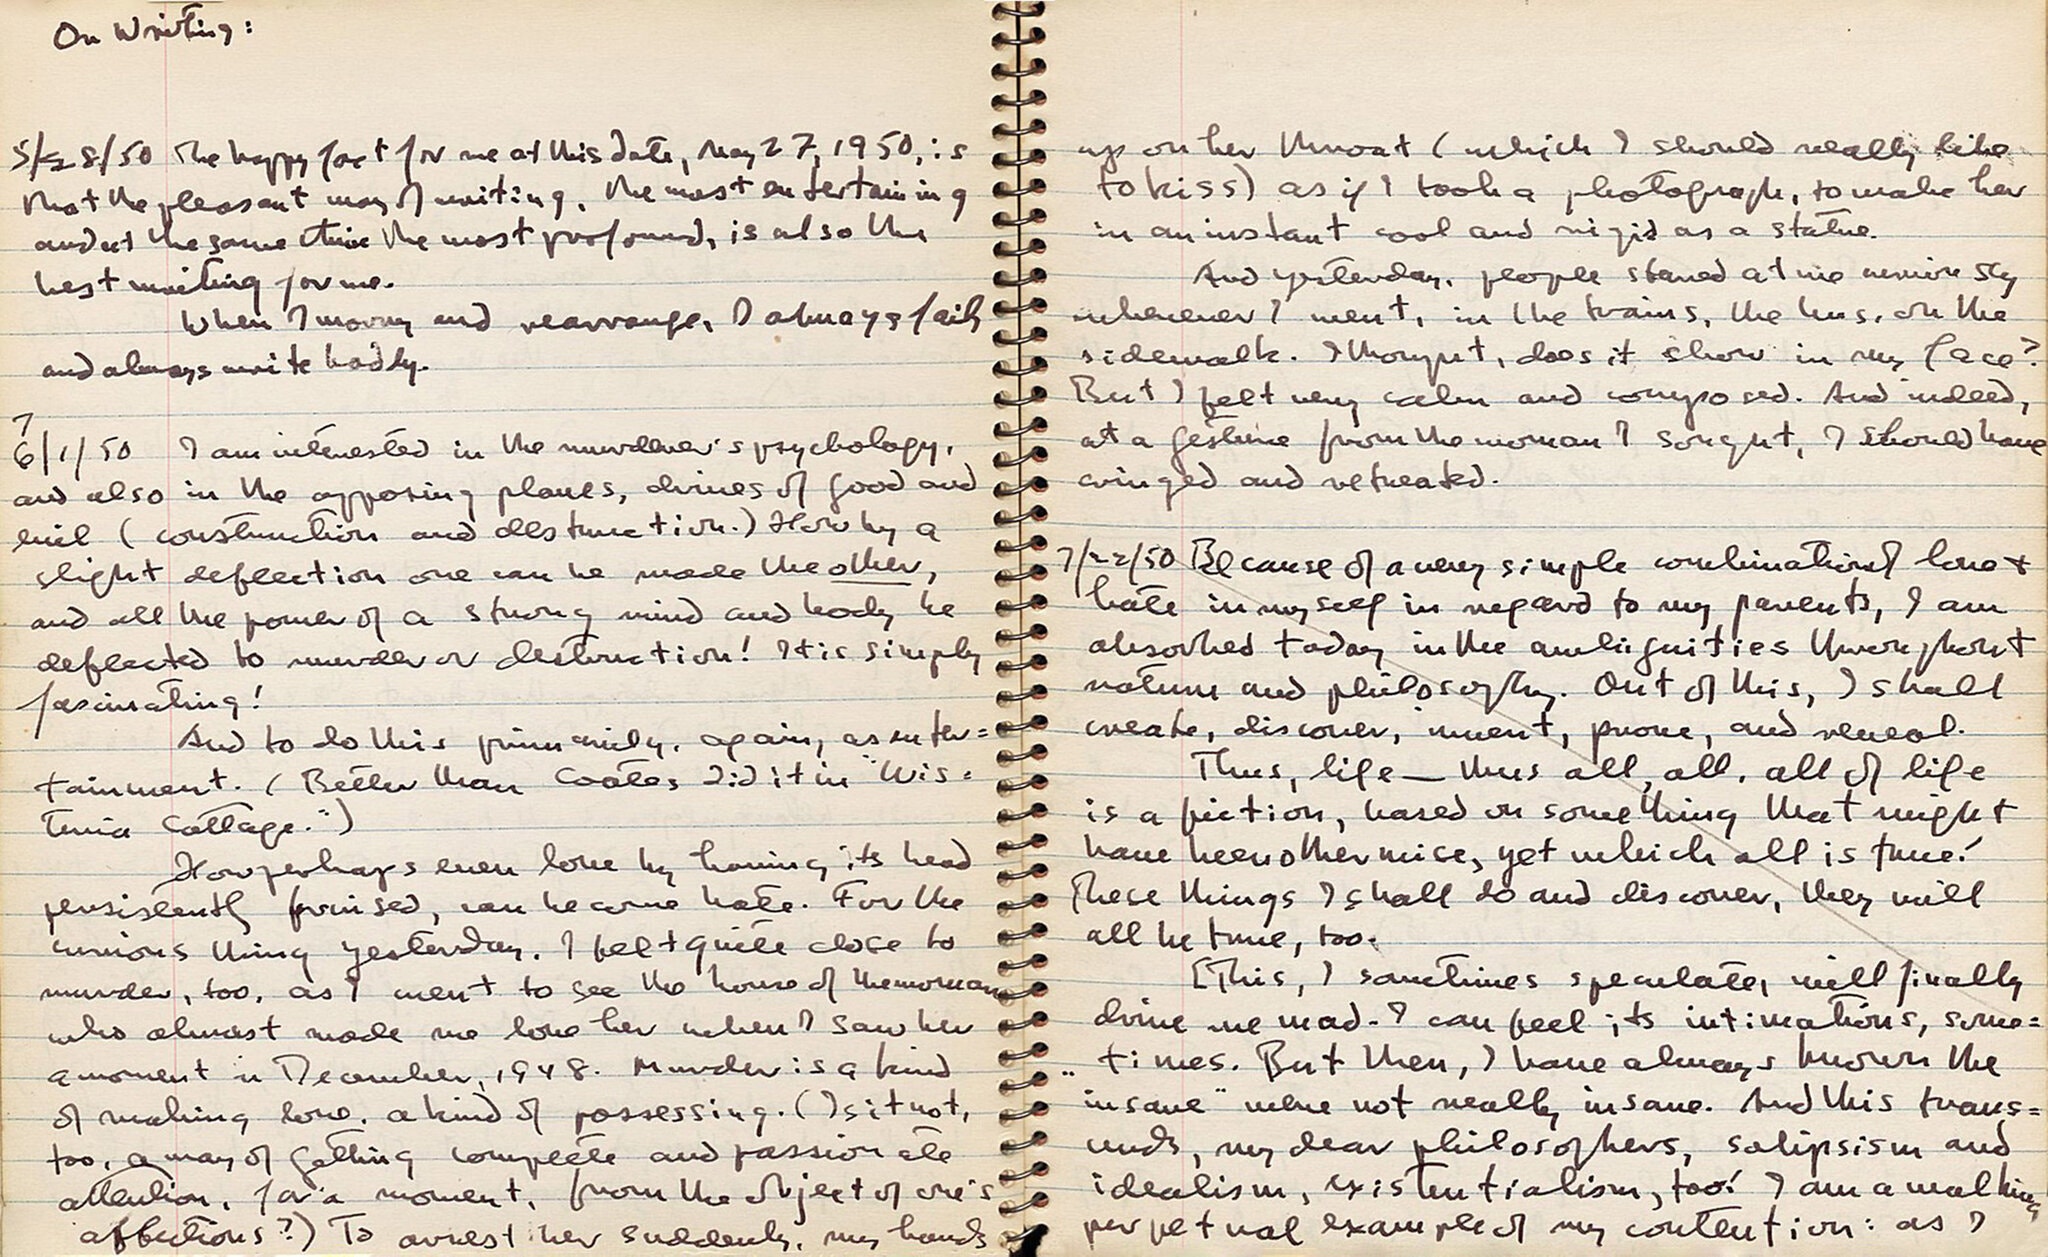 On Writing:
5/28/50 The happy fact for me at this date, May 27, 1950, is
that the pleasant way of writing, the most entertaining
and at the same time the most profound, is also the
best writing for me.
When I worry and rearrange, I always fail,
and always write badly.
7
6/1/50 I am interested in the murderer's psychology,
and also in the opposing planes, drives of good and
evil (construction and destruction.) How by a
slight deflection one can be made the other,
and all the power of a strong mind and body be
deflected to murder or destruction! It is simply
fascinating!
And to do this primarily, again, as enter=
tainment. (Better than Coates did it in "Wis=
teria Cottage.")
How perhaps even love by having its head
persistently bruised, can become hate. For the
curious thing yesterday, I felt quite close to
murder, too, as I went to see the house of the woman
who almost made me love her when I saw her
a moment in December, 1948. Murder is a kind
of making love, a kind of possessing. (Is it not,
too, a way of getting complete and passionate
attention, for a moment, from the object of one's
affections?) To arrest her suddenly, my hands
up on her throat (which I should really like
to kiss) as if I took a photograph, to make her
in an instant cool and rigid as a statue.
And yesterday, people stared at me
wherever I went, in the trains, the bus, on the
sidewalk. I thought, does it show in my face?
But I felt very calm and composed. And indeed,
at a gesture from the woman I sought, I should have
cringed and retreated.
7/22/50 Because of a very simple combination of love +
hate in myself in regard to my parents, I am
absorbed today in the ambiguities throughout
nature and philosophy. Out of this, I shall
create, discover, invent, prove, and reveal.
Thus, life — thus all, all, all of life
is a fiction, based on something that might
have been otherwise, yet which all is true!
These things I shall do and discover, they will
all be true, too.
[This, I sometimes speculate, will finally
drive me mad. I can feel its intimations, some=
times. But then, I have always known the
"insane" were not really insane. And this trans=
cends, my dear philosophers, solipsism and
idealism, existentialism, too! I am a walking
perpetual example of my contention: as I